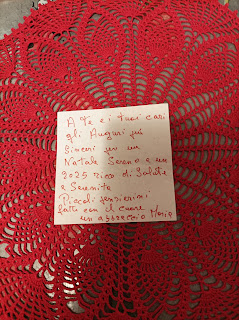 A Te e i tuoi cari
gli Auguri più
Sinceri per un
Natale Sereno e un
2025 ricco di Salute
e Serenità
Piccoli pensierini
fatti con il cuore
un abbraccio Maria